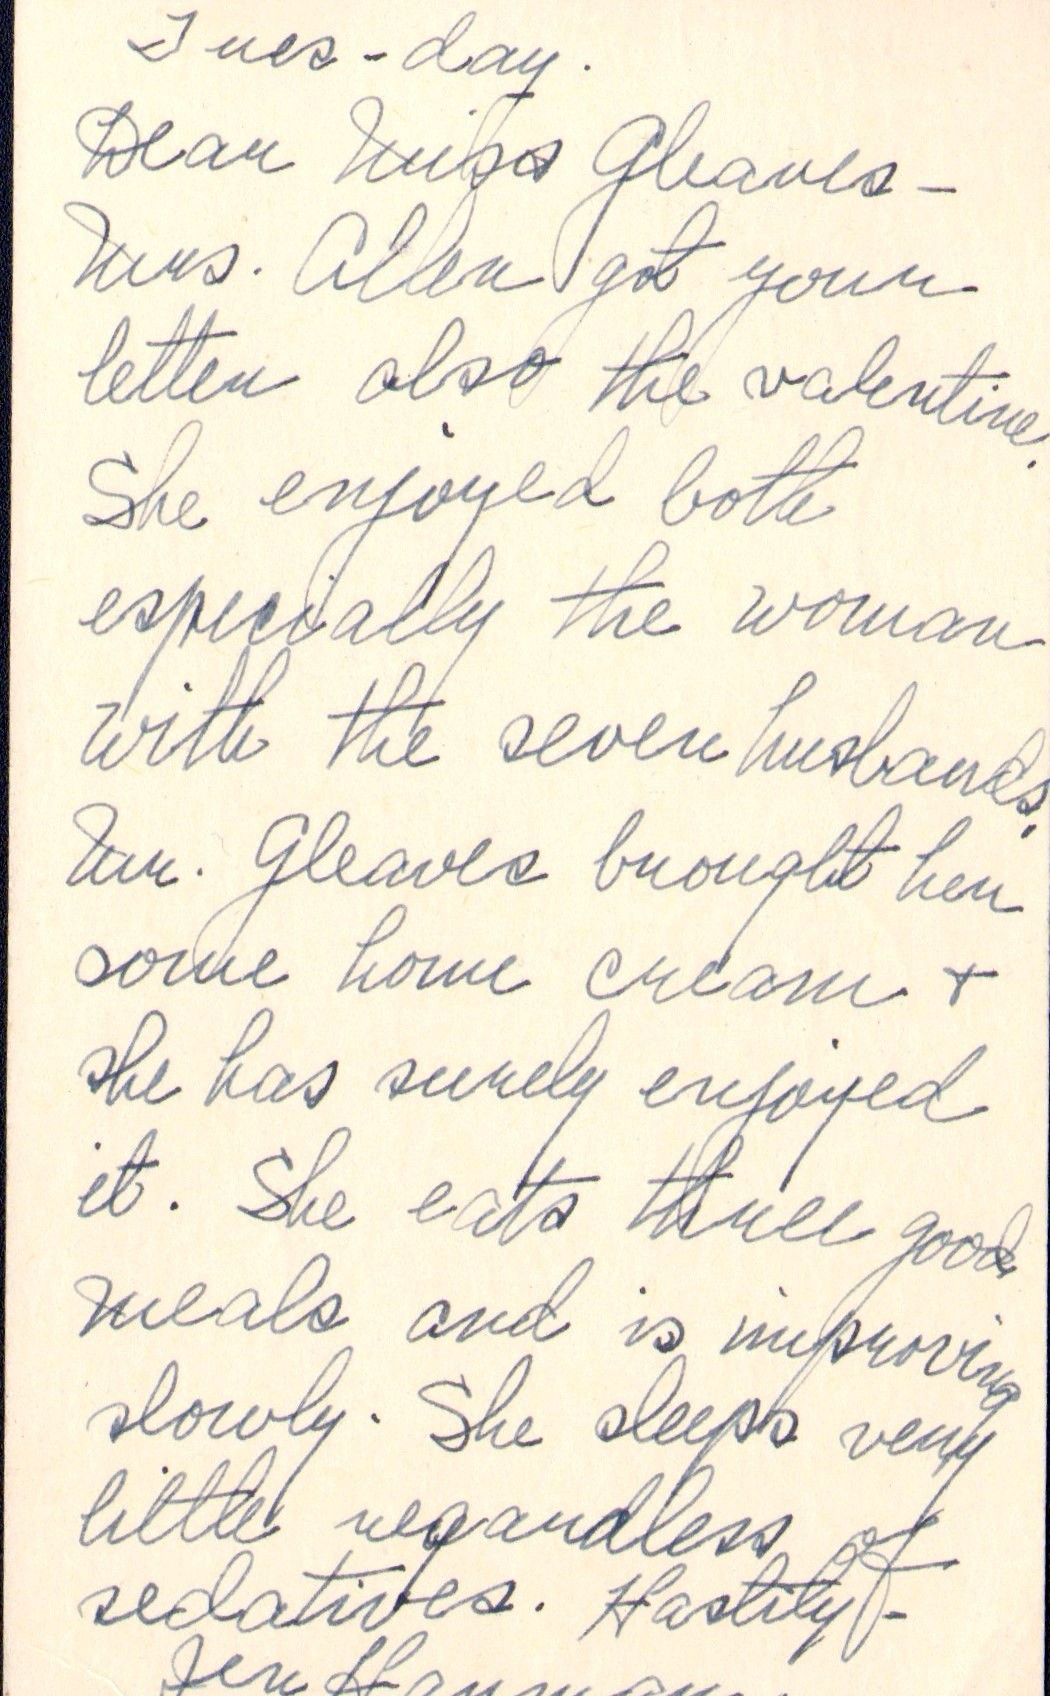 Tues-day.
Dear Miss Gleaves-
Mrs. Allen got your
letter also the valentine.
She enjoyed both
especially the woman
with the seven husbands.
Mr. Gleaves brought her
some home cream +
she has surely enjoyed
it. She eats three good
meals and is improving
slowly. She sleeps very
little regardless of
sedatives. Hastily-